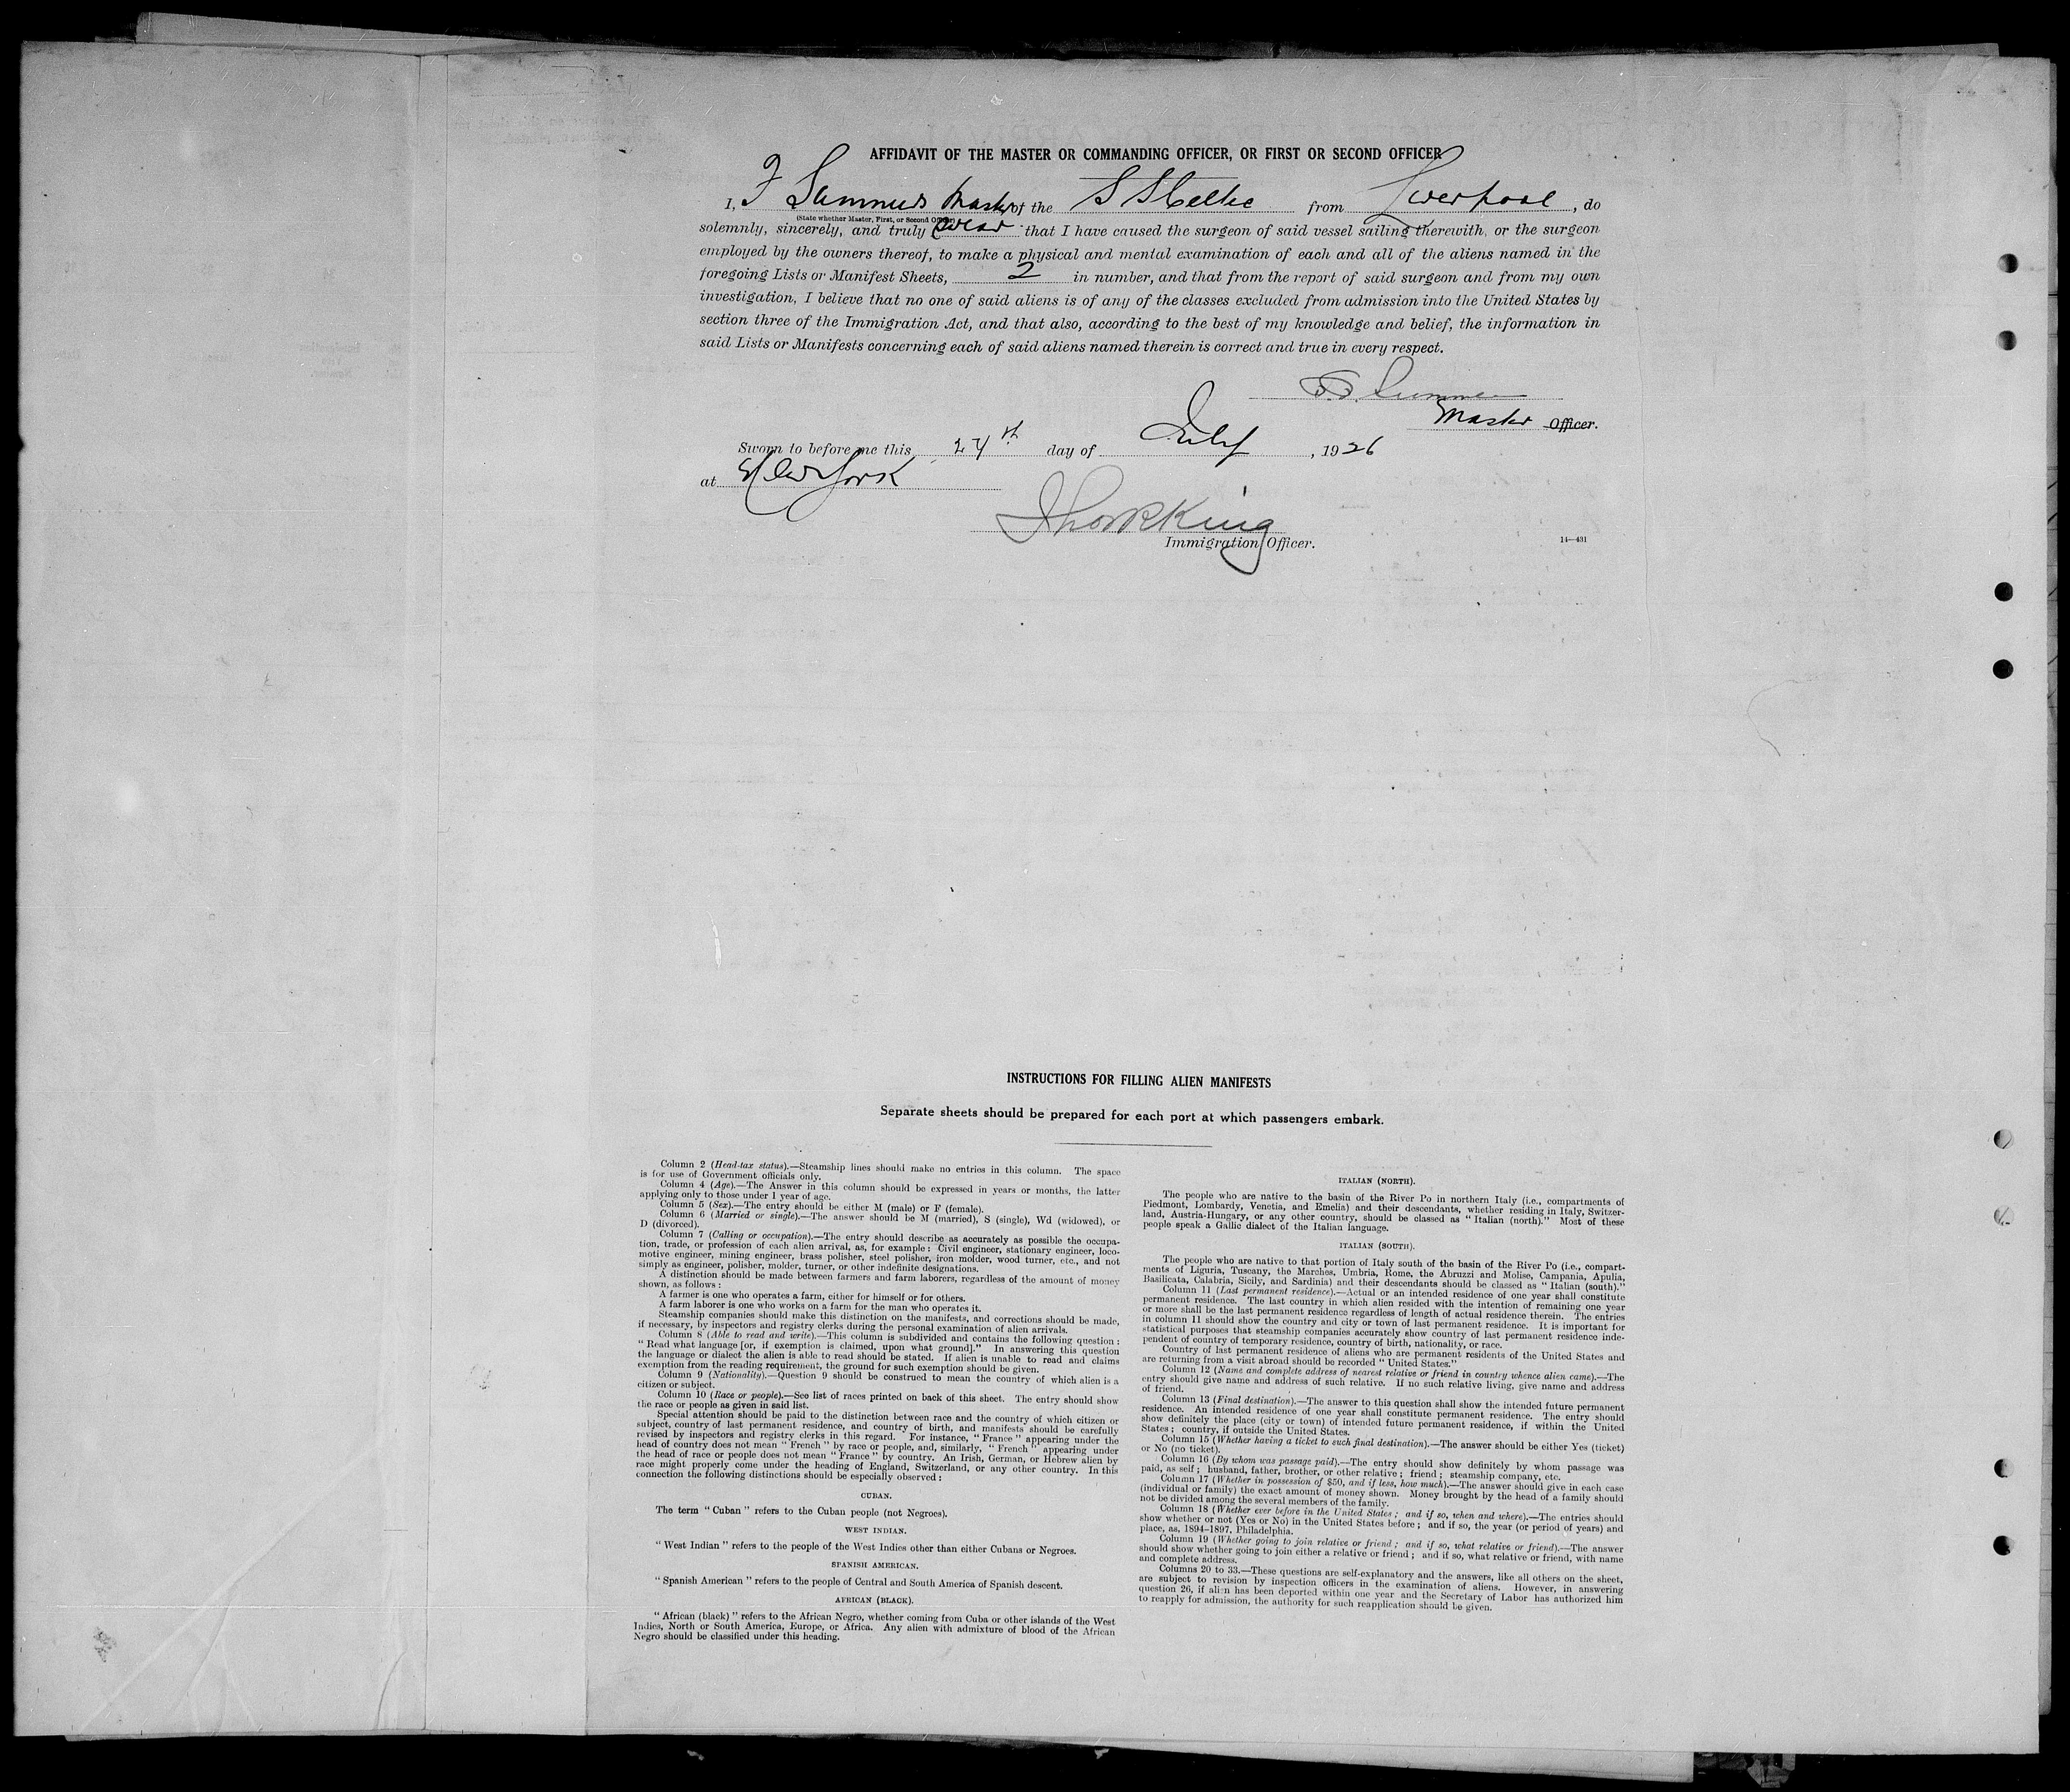 AFFIDAVIT OF THE MASTER OR COMMANDING OFFICER, OR FIRST OR SECOND OFFICER
I, F Summers Master of the S S Celtic from Liverpool, do
(State whether Master, First, or Second Officer)
solemnly, sincerely, and truly swear that I have caused the surgeon of said vessel sailing therewith, or the surgeon
employed by the owners thereof, to make a physical and mental examination of each and all of the aliens named in the
foregoing Lists or Manifest Sheets, 2 in number, and that from the report of said surgeon and from my own
investigation, I believe that no one of said aliens is of any of the classes excluded from admission into the United States by
section three of the Immigration Act, and that also, according to the best of my knowledge and belief, the information in
said Lists or Manifests concerning each of said aliens named therein is correct and true in every respect.
Master Officer.
Sworn to before me this day of July, 1926
at New York
King
Immigration Officer.
14—431
INSTRUCTIONS FOR FILLING ALIEN MANIFESTS
Separate sheets should be prepared for each port at which passengers embark.
Column 2 (Head-tax status).—Steamship lines should make no entries in this column. The space
is for use of Government officials only.
Column 4 (Age).—The Answer in this column should be expressed in years or months, the latter
applying only to those under 1 year of age.
Column 5 (Sex).—The entry should be either M (male) or F (female).
Column 6 (Married or single).—The answer should be M (married), S (single), Wd (widowed), or
D (divorced).
Column 7 (Calling or occupation).—The entry should describe as accurately as possible the occupa-
tion, trade, or profession of each alien arrival, as, for example: Civil engineer, stationary engineer, loco-
motive engineer, mining engineer, brass polisher, steel polisher, iron molder, wood turner, etc., and not
simply as engineer, polisher, molder, turner, or other indefinite designations.
A distinction should be made between farmers and farm laborers, regardless of the amount of money
shown, as follows:
A farmer is one who operates a farm, either for himself or for others.
A farm laborer is one who works on a farm for the man who operates it.
Steamship companies should make this distinction on the manifests, and corrections should be made,
if necessary, by inspectors and registry clerks during the personal examination of alien arrivals.
Column 8 (Able to read and write).—This column is subdivided and contains the following question:
"Read what language [or, if exemption is claimed, upon what ground]." In answering this question
the language or dialect the alien is able to read should be stated. If alien is unable to read and claims
exemption from the reading requirement, the ground for such exemption should be given.
Column 9 (Nationality).—Question 9 should be construed to mean the country of which alien is a
citizen or subject.
Column 10 (Race or people).—See list of races printed on back of this sheet. The entry should show
the race or people as given in said list.
Special attention should be paid to the distinction between race and the country of which citizen or
subject, country of last permanent residence, and country of birth, and manifests should be carefully
revised by inspectors and registry clerks in this regard. For instance, "France" appearing under the
head of country does not mean "French" by race or people, and, similarly, "French" appearing under
the head of race or people does not mean "France" by country. An Irish, German, or Hebrew alien by
race might properly come under the heading of England, Switzerland, or any other country. In this
connection the following distinctions should be especially observed:
CUBAN.
The term "Cuban" refers to the Cuban people (not Negroes).
WEST INDIAN.
"West Indian" refers to the people of the West Indies other than either Cubans or Negroes.
SPANISH AMERICAN.
"Spanish American" refers to the people of Central and South America of Spanish descent.
AFRICAN (BLACK).
"African (black)" refers to the African Negro, whether coming from Cuba or other islands of the West
Indies, North or South America, Europe, or Africa. Any alien with admixture of blood of the African
Negro should be classified under this heading.
ITALIAN (NORTH).
The people who are native to the basin of the River Po in northern Italy (i.e., compartments of
Piedmont, Lombardy, Venetia, and Emelia) and their descendants, whether residing in Italy, Switzer-
land, Austria-Hungary, or any other country, should be classed as "Italian (north)." Most of these
people speak a Gallic dialect of the Italian language.
ITALIAN (SOUTH).
The people who are native to that portion of Italy south of the basin of the River Po (i.e., compart-
ments of Liguria, Tuscany, the Marches, Umbria, Rome, the Abruzzi and Molise, Campania, Apulia,
Basilicata, Calabria, Sicily, and Sardinia) and their descendants should be classed as "Italian (south)."
Column 11 (Last permanent residence).—Actual or an intended residence of one year shall constitute
permanent residence. The last country in which alien resided with the intention of remaining one year
or more shall be the last permanent residence regardless of length of actual residence therein. The entries
in column 11 should show the country and city or town of last permanent residence. It is important for
statistical purposes that steamship companies accurately show country of last permanent residence inde-
pendent of country of temporary residence, country of birth, nationality, or race.
Country of last permanent residence of aliens who are permanent residents of the United States and
are returning from a visit abroad should be recorded "United States."
Column 12 (Name and complete address of nearest relative or friend in country whence alien came).—The
entry should give name and address of such relative. If no such relative living, give name and address
of friend.
Column 13 (Final destination).—The answer to this question shall show the intended future permanent
residence. An intended residence of one year shall constitute permanent residence. The entry should
show definitely the place (city or town) of intended future permanent residence, if within the United
States; country, if outside the United States.
Column 15 (Whether having a ticket to such final destination).—The answer should be either Yes (ticket)
or No (no ticket).
Column 16 (By whom was passage paid).—The entry should show definitely by whom passage was
paid, as self; husband, father, brother, or other relative; friend; steamship company, etc.
Column 17 (Whether in possession of $50, and if less, how much).—The answer should give in each case
(individual or family) the exact amount of money shown. Money brought by the head of a family should
not be divided among the several members of the family.
Column 18 (Whether ever before in the United States; and if so, when and where).—The entries should
show whether or not (Yes or No) in the United States before; and if so, the year (or period of years) and
place, as, 1894-1897, Philadelphia.
Column 19 (Whether going to join relative or friend; and if so, what relative or friend).—The answer
should show whether going to join either a relative or friend; and if so, what relative or friend, with name
and complete address.
Columns 20 to 33.—These questions are self-explanatory and the answers, like all others on the sheet,
are subject to revision by inspection officers in the examination of aliens. However, in answering
question 26, if alien has been deported within one year and the Secretary of Labor has authorized him
to reapply for admission, the authority for such reapplication should be given.